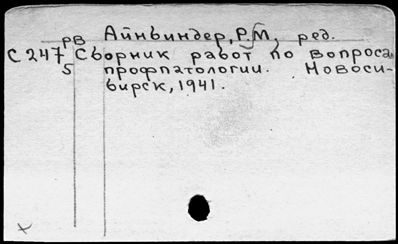 рв Айнбиндер, Р.М, ред.
С 247 Сборник работ по вопроса
5 профпатологии. Новоси-
бирск, 1941.